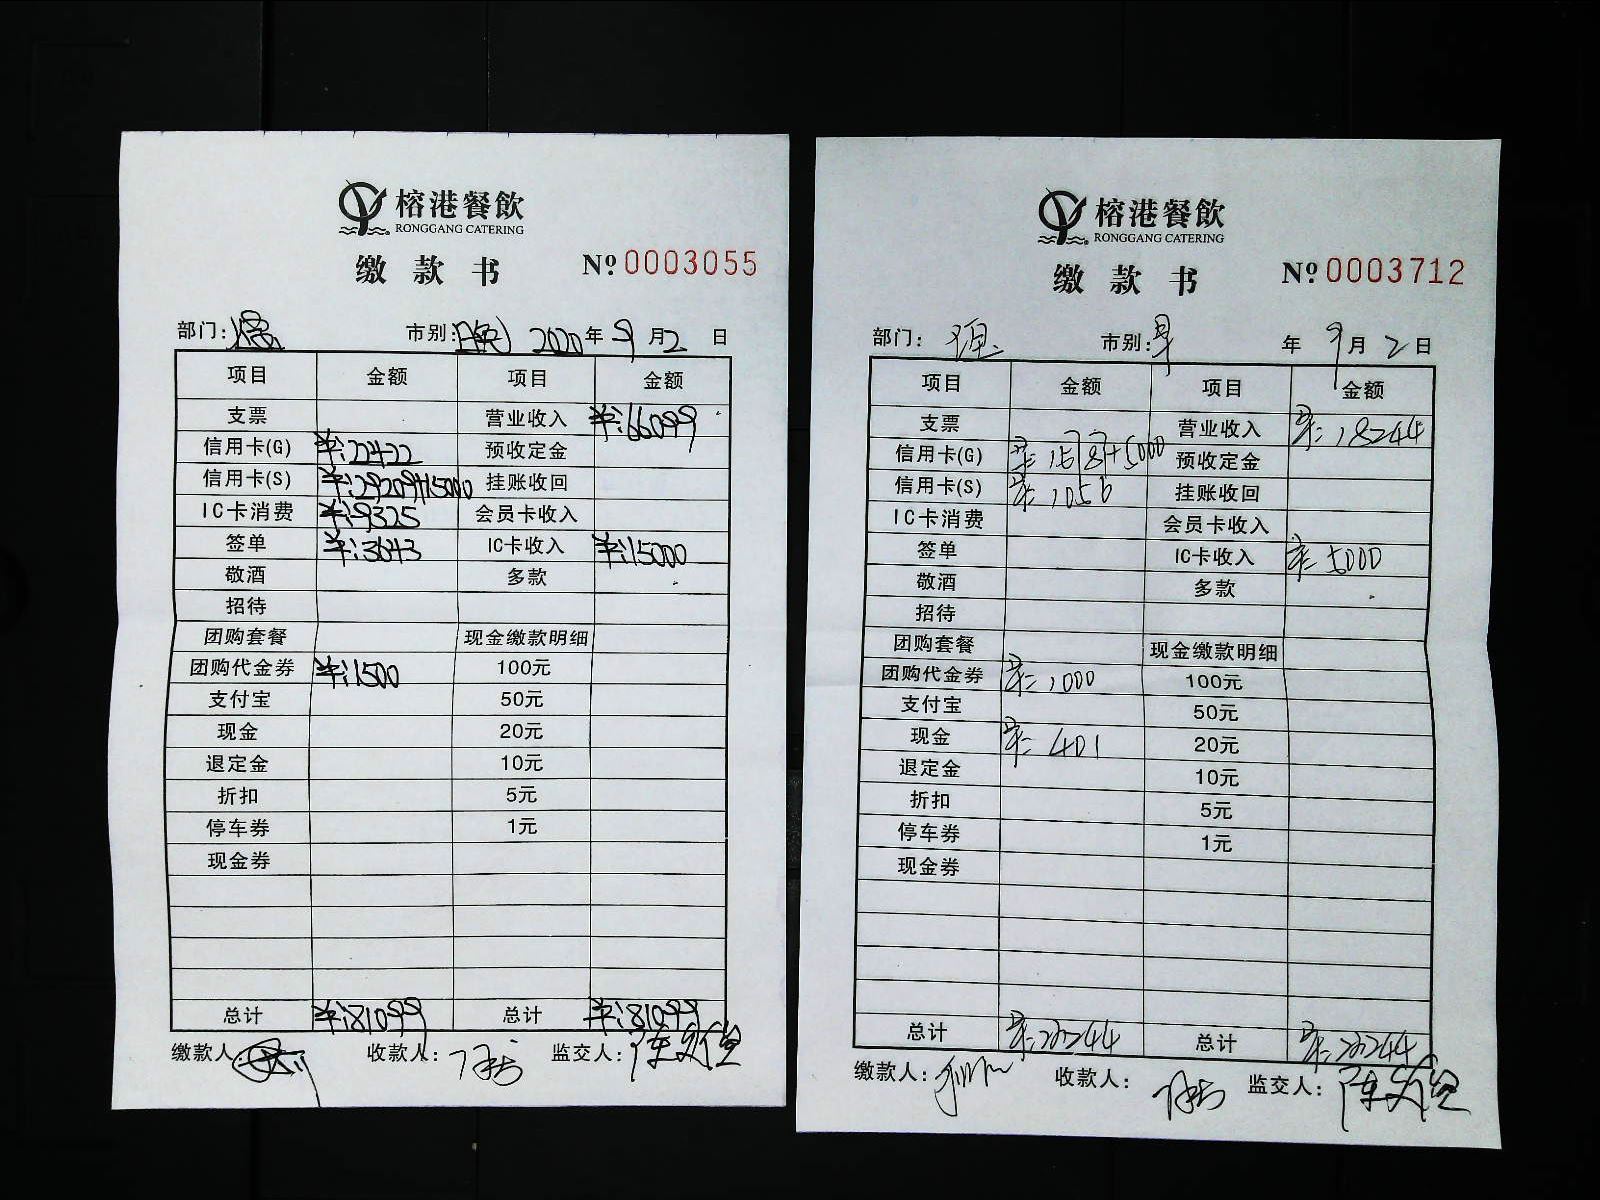 榕港餐飲
RONGGANG CATERING
缴款书 № 0003055
部门: 市别: 2020年9月2日
项目 金额 项目 金额
支票 营业收入 ¥:66099
信用卡(G) ¥:22422 预收定金
信用卡(S) ¥:29209+15000 挂账收回
IC卡消费 ¥:9325 会员卡收入
签单 ¥:3643 IC卡收入 ¥:15000
敬酒 多款
招待
团购套餐 现金缴款明细
团购代金券 ¥:1500 100元
支付宝 50元
现金 20元
退定金 10元
折扣 5元
停车券 1元
现金券
总计 ¥:81099 总计 ¥:81099
缴款人: 收款人: 监交人:
榕港餐飲
RONGGANG CATERING
缴款书 № 0003712
部门: 市别:早 年9月2日
项目 金额 项目 金额
支票 营业收入 ¥:18244
信用卡(G) ¥:15787+5000 预收定金
信用卡(S) ¥:1056 挂账收回
IC卡消费 会员卡收入
签单 IC卡收入 ¥:5000
敬酒 多款
招待
团购套餐 现金缴款明细
团购代金券 ¥:1000 100元
支付宝 50元
现金 ¥:401 20元
退定金 10元
折扣 5元
停车券 1元
现金券
总计 ¥:23244 总计 ¥:23244
缴款人: 收款人: 监交人: